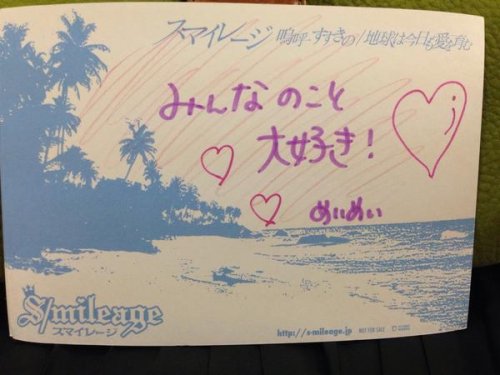 スマイレージ 嗚呼 すすきの/地球は今日も愛を育む
みんなのこと
大好き!
めいめい
S/mileage
スマイレージ
http://s-mileage.jp NOT FOR SALE